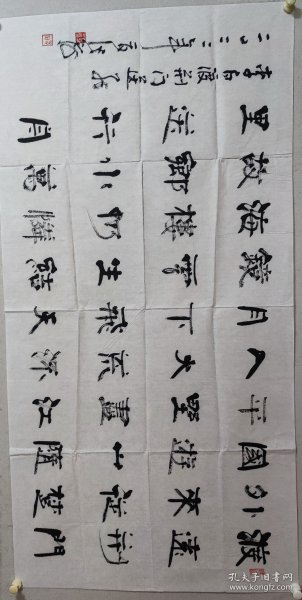 渡遠荆門
外來從楚
國遊山隨
平野盡江
入大荒流
月下飛天
鏡雲生結
海樓仍憐
故鄉水萬
里送行舟
李白渡荆门送别
二〇二三年
孔夫子旧书网